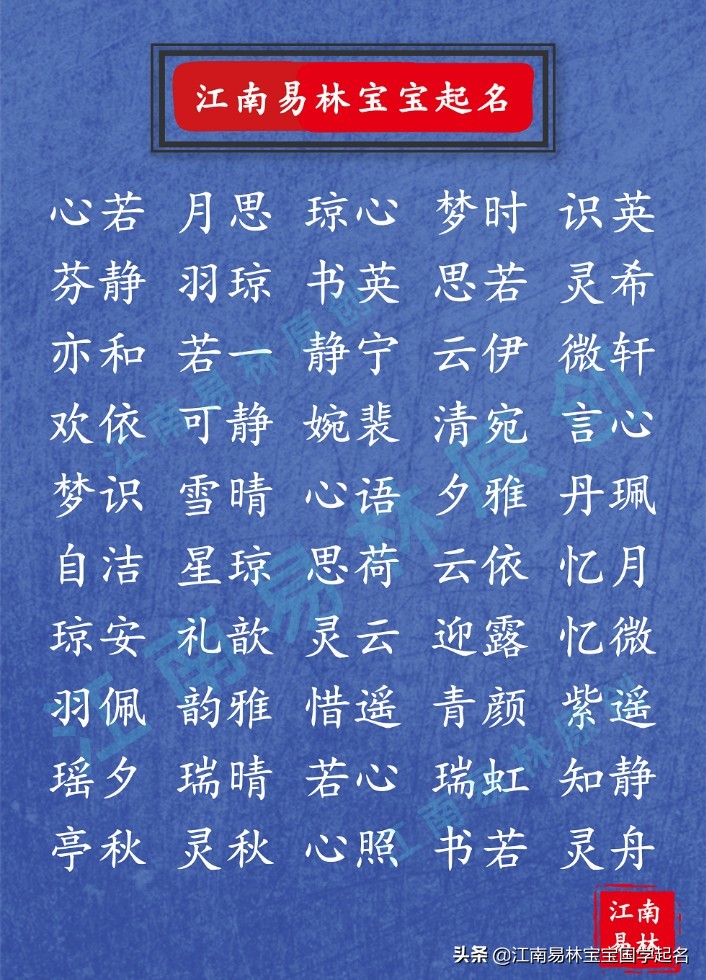 江南易林宝宝起名
心若 月思 琼心 梦时 识英
芬静 羽琼 书英 思若 灵希
亦和 若一 静宁 云伊 微轩
欢依 可静 婉裴 清宛 言心
梦识 雪晴 心语 夕雅 丹珮
自洁 星琼 思荷 云依 忆月
琼安 礼歆 灵云 迎露 忆微
羽佩 韵雅 惜遥 青颜 紫遥
瑶夕 瑞晴 若心 瑞虹 知静
亭秋 灵秋 心照 书若 灵舟
江南易林原创
江南易林原创
江南易林原创
江南
易林
头条 @江南易林宝宝国学起名